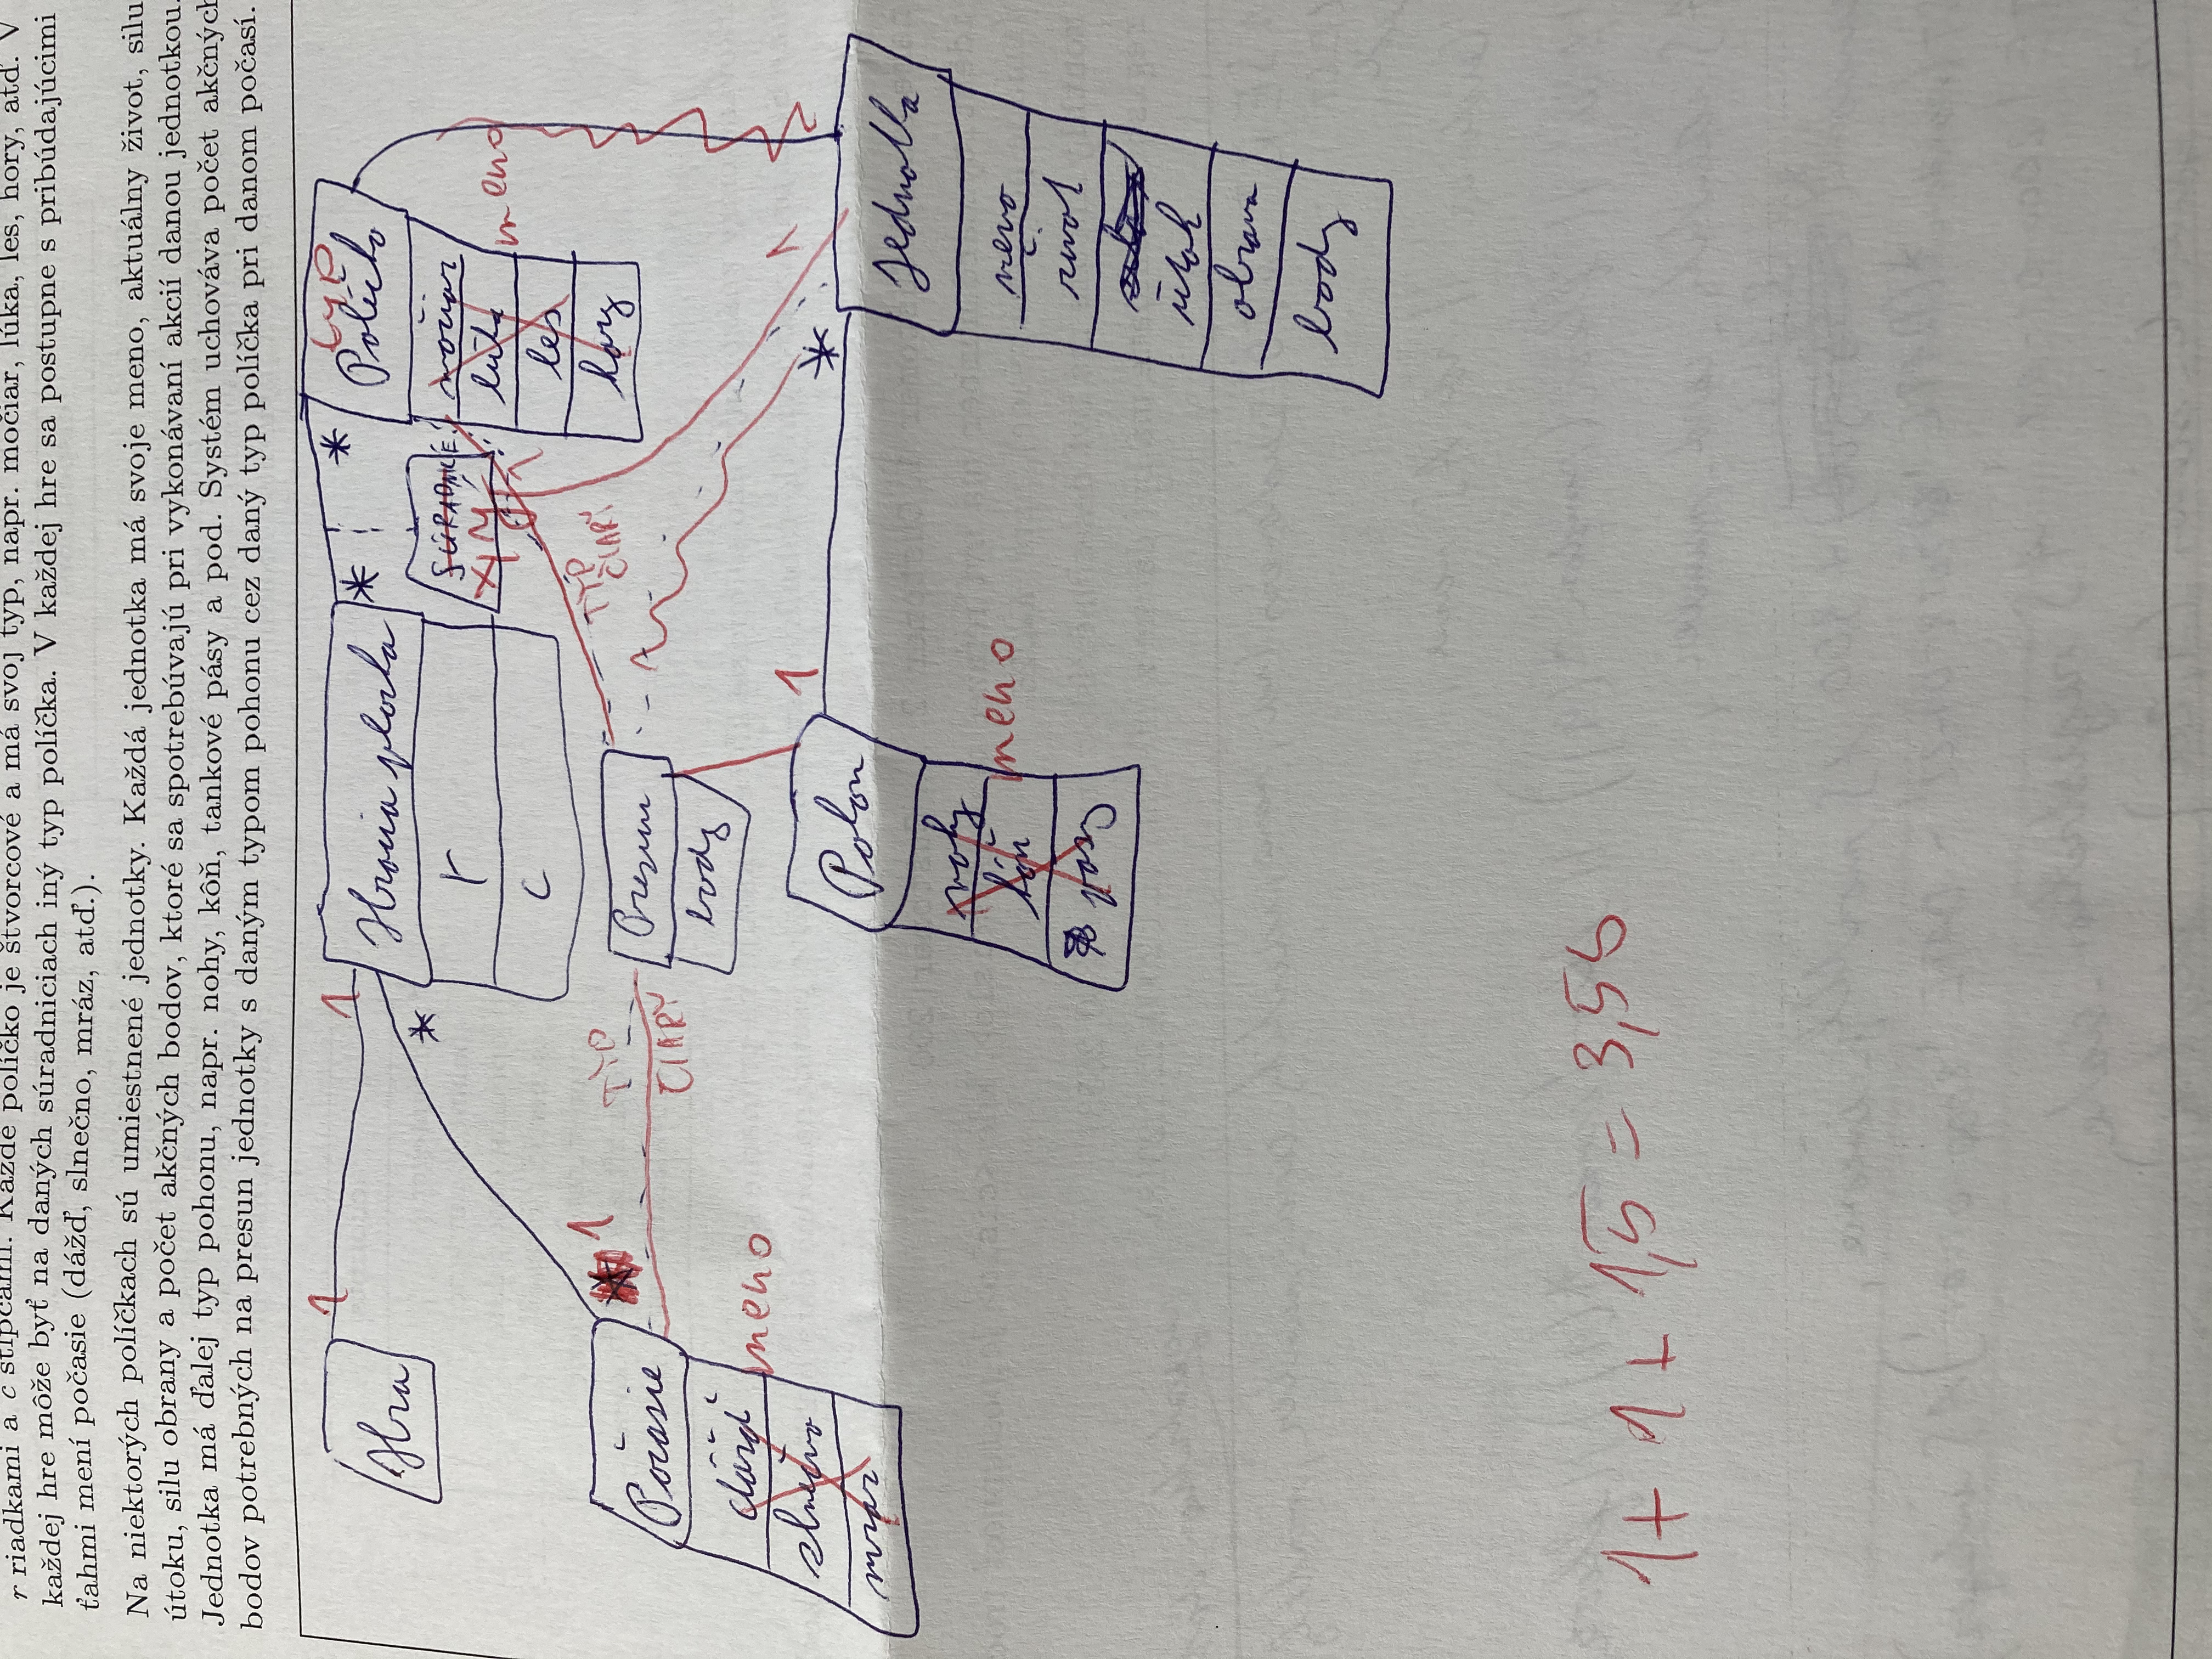 r riadkami a c stĺpcami. Každé políčko je štvorcové a má svoj typ, napr. močiar, lúka, les, hory, atď. V
každej hre môže byť na daných súradniciach iný typ políčka. V každej hre sa postupne s pribúdajúcimi
ťahmi mení počasie (dážď, slnečno, mráz, atď.).
Na niektorých políčkach sú umiestnené jednotky. Každá jednotka má svoje meno, aktuálny život, silu
útoku, silu obrany a počet akčných bodov, ktoré sa spotrebúvajú pri vykonávaní akcií danou jednotkou.
Jednotka má ďalej typ pohonu, napr. nohy, kôň, tankové pásy a pod. Systém uchováva počet akčných
bodov potrebných na presun jednotky s daným typom pohonu cez daný typ políčka pri danom počasí.
Hra
1
1
Hracia plocha
*
*
typ
Políčko
r
c
*
SÚRADNICE
močiar
lúka
les
hory
meno
Počasie
1
dážď
slnečno
mráz
meno
TYP
ČIARY
Presun
body
1
TYP
ČIARY
1
Pohon
1
nohy
kôň
pásy
meno
*
Jednotka
meno
život
útok
obrana
body
1 + 1 + 1,5 = 3,5b